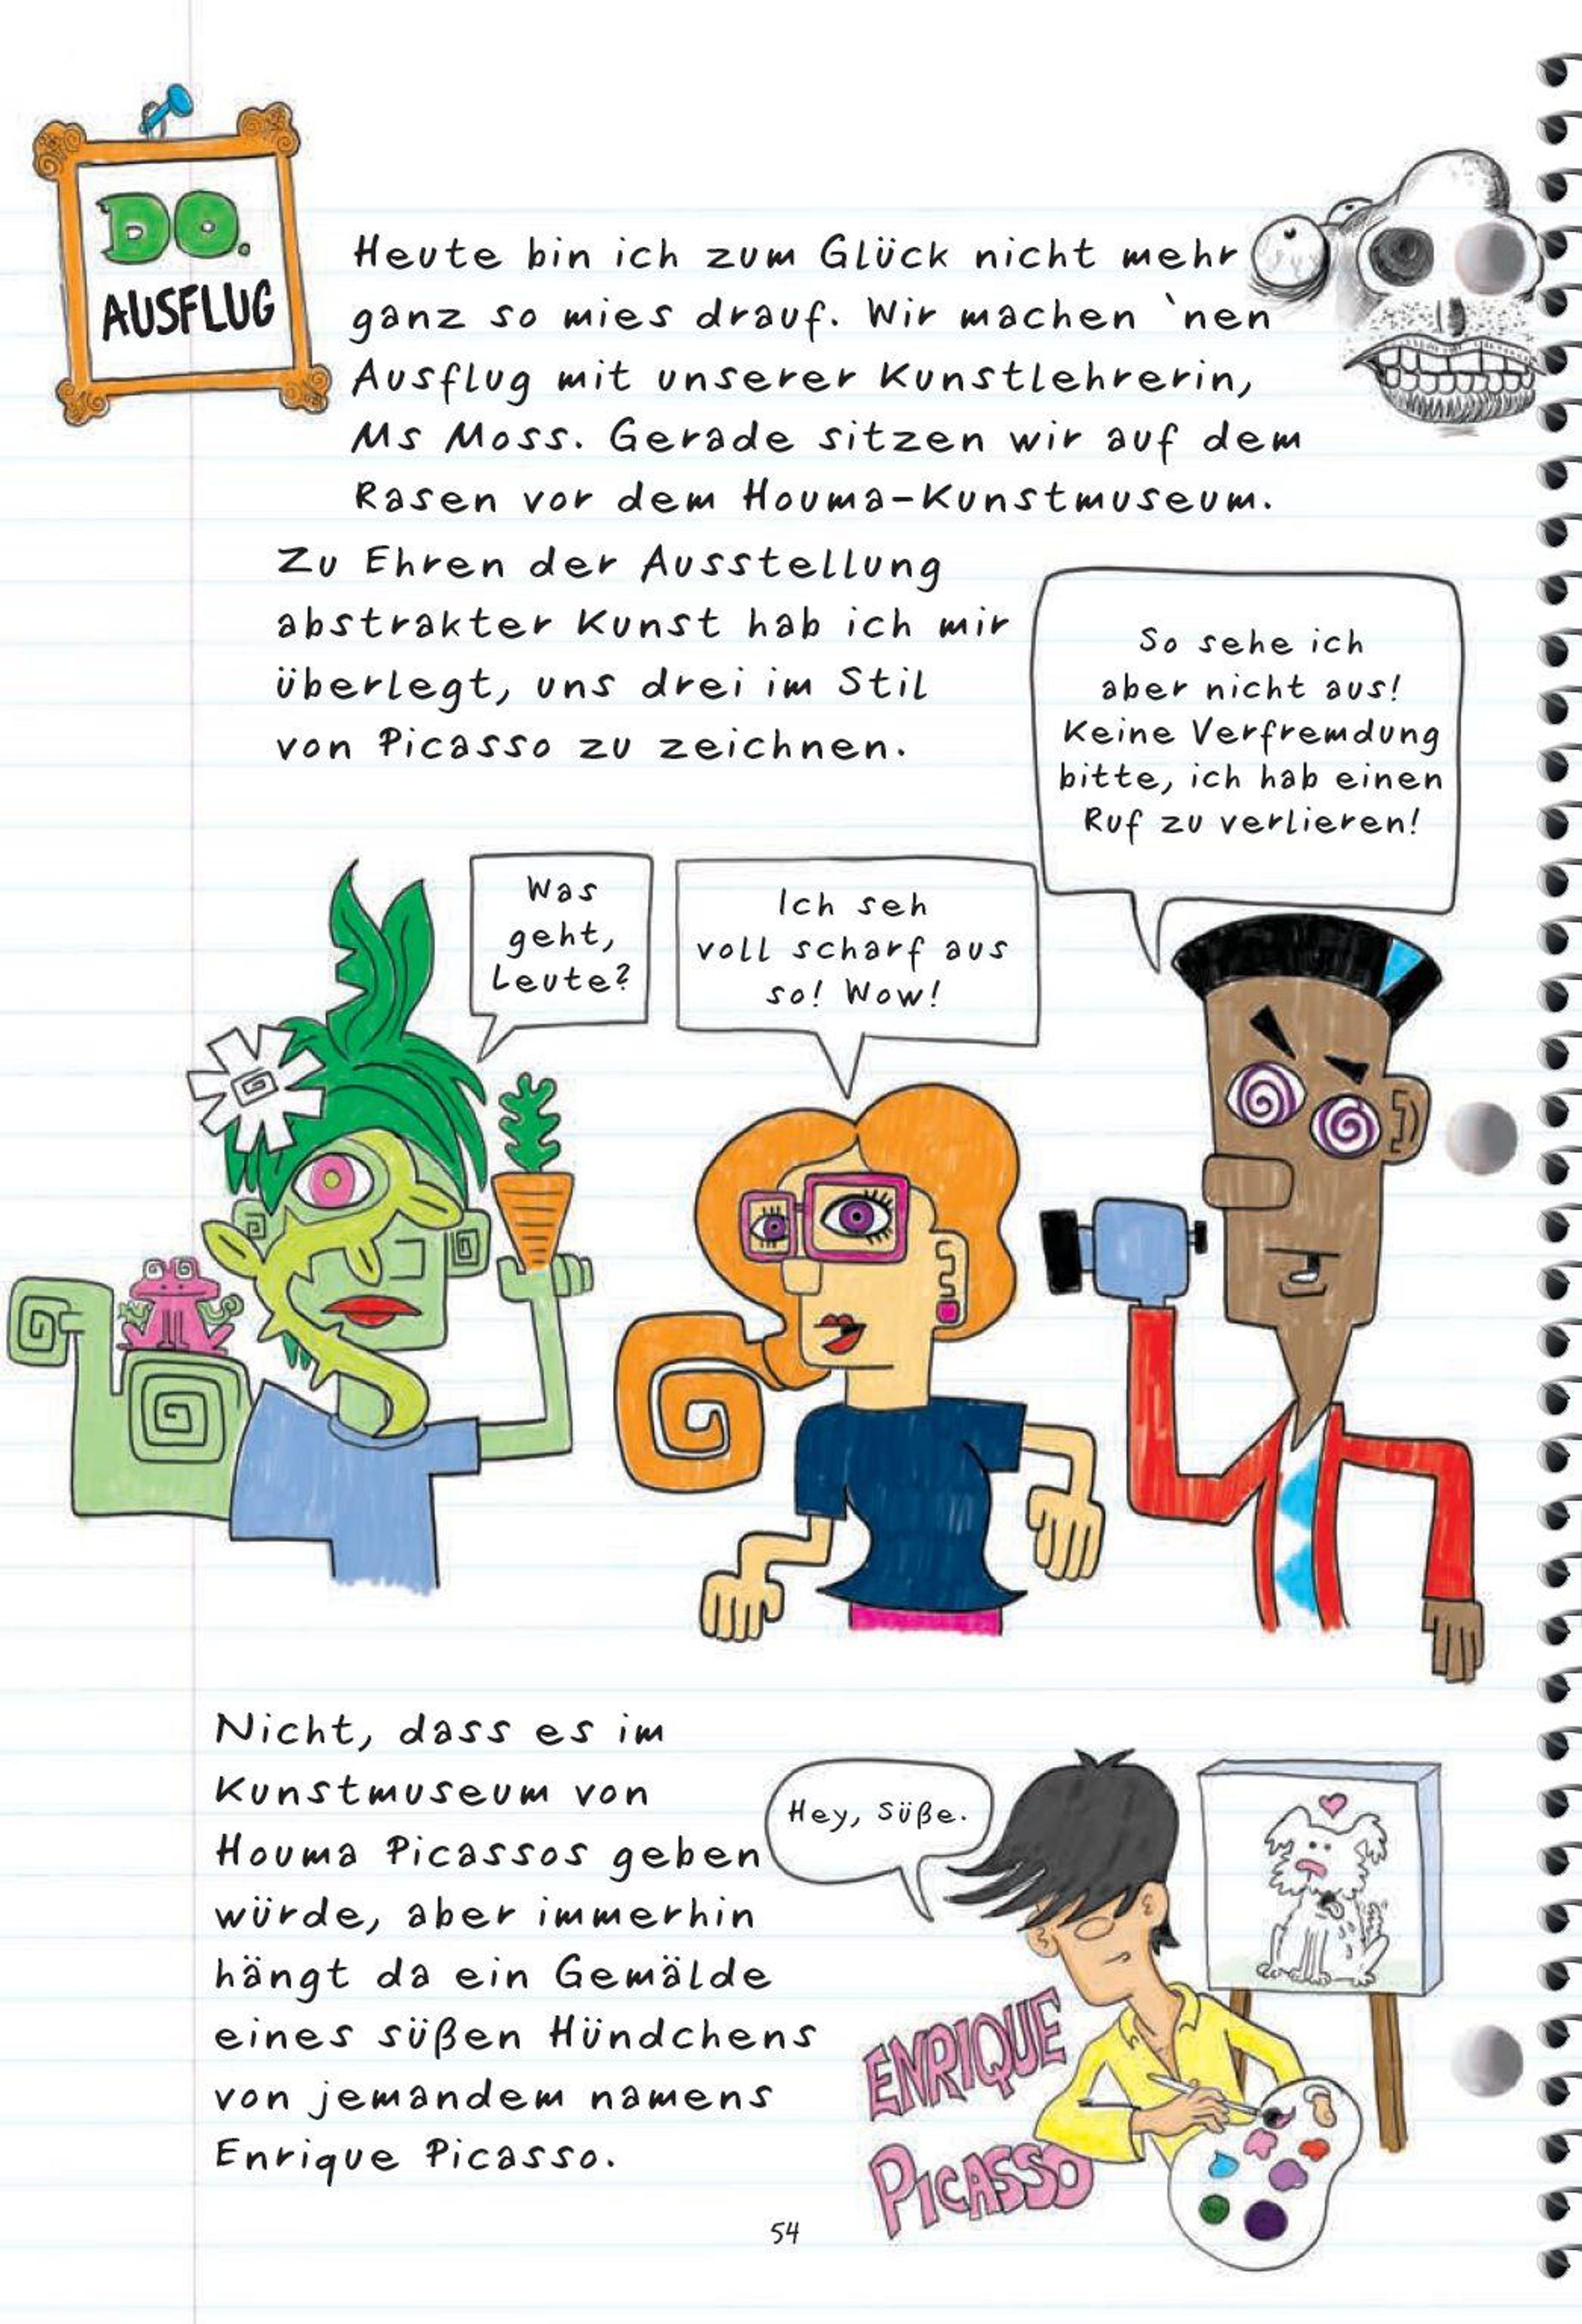 DO.
AUSFLUG
Heute bin ich zum Glück nicht mehr
ganz so mies drauf. Wir machen `nen
Ausflug mit unserer Kunstlehrerin,
Ms Moss. Gerade sitzen wir auf dem
Rasen vor dem Houma-Kunstmuseum.
Zu Ehren der Ausstellung
abstrakter Kunst hab ich mir
überlegt, uns drei im Stil
von Picasso zu zeichnen.
So sehe ich
aber nicht aus!
Keine Verfremdung
bitte, ich hab einen
Ruf zu verlieren!
Was
geht,
Leute?
Ich seh
voll scharf aus
so! Wow!
Nicht, dass es im
Kunstmuseum von
Houma Picassos geben
würde, aber immerhin
hängt da ein Gemälde
eines süßen Hündchens
von jemandem namens
Enrique Picasso.
Hey, Süße.
ENRIQUE
PICASSO
54